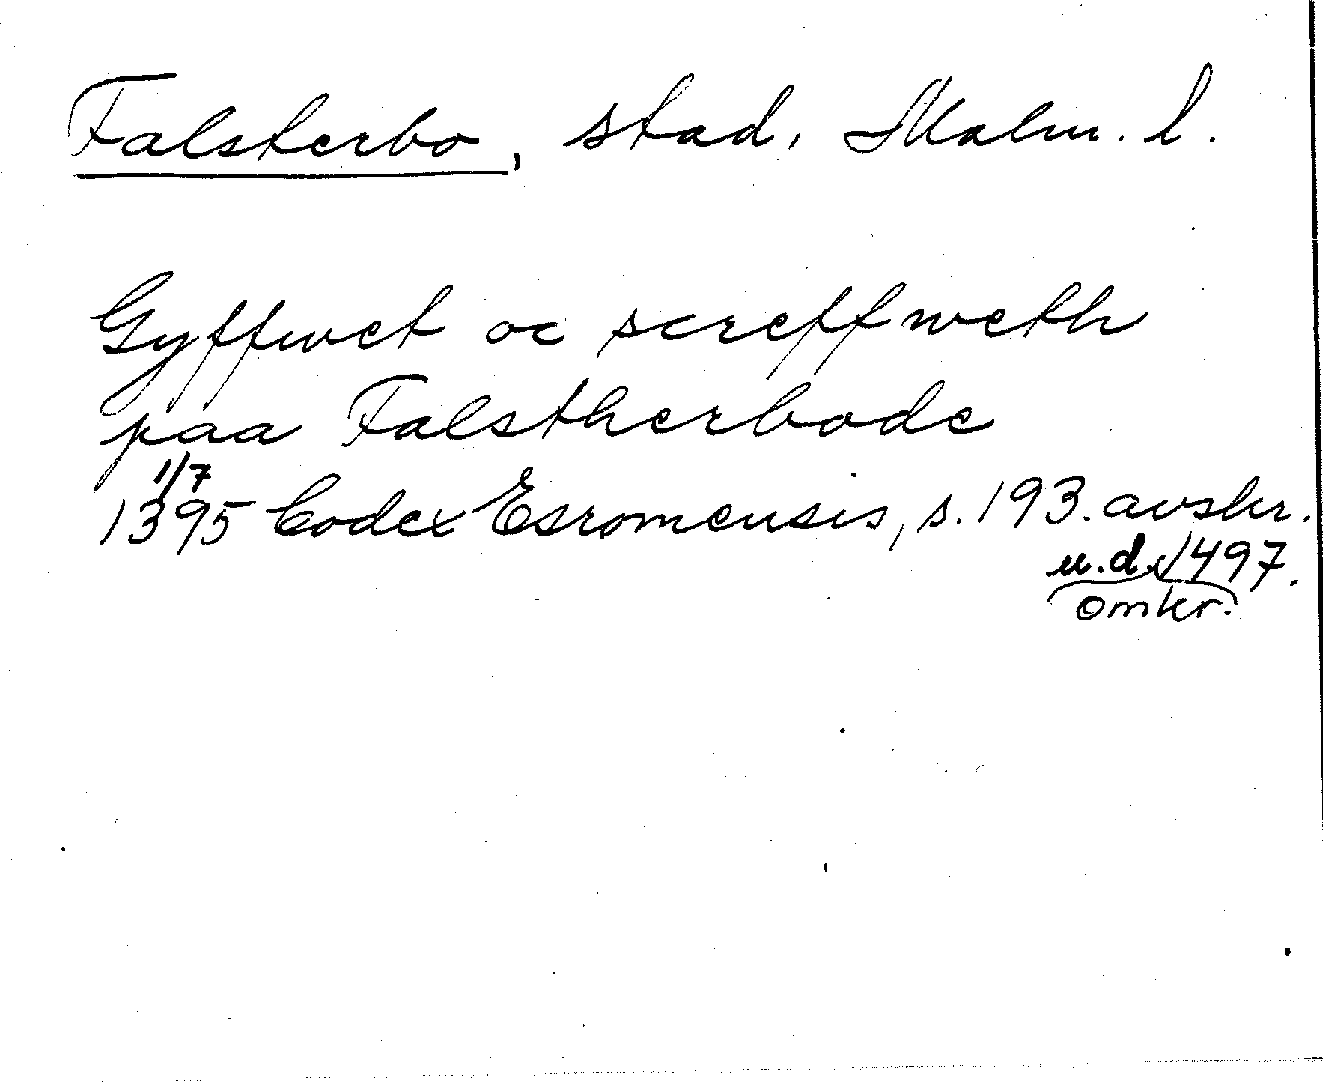 Falsterbo, stad, Malm. l.
Gyffwet oc screffweth
paa Falstherbode
1/7
1395 Codex Esromensis, s. 193. avskr.
u.d. 1497.
omkr.